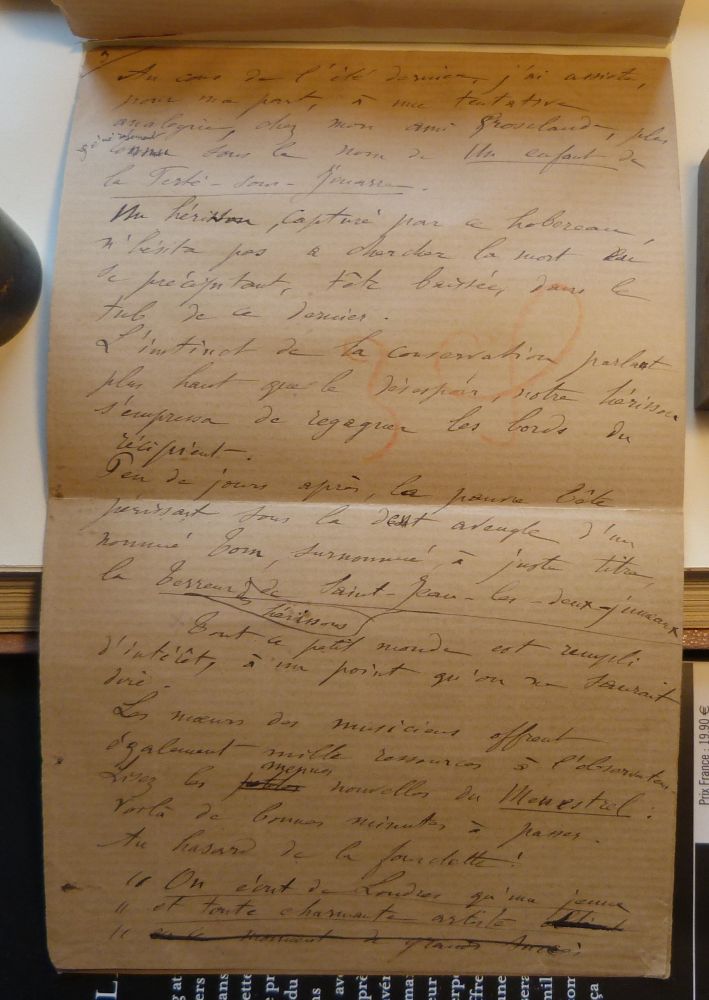 3
Au cours de l'été dernier, j'ai assisté,
pour ma part, à une tentative
analogue, chez mon ami Grosclaude, plus
généralement
connu sous le nom de Un enfant de
la Ferté-sous-Jouarre.
Un hérisson, capturé par ce hobereau,
n'hésita pas à chercher la mort en
se précipitant, tête baissée, dans le
tub de ce dernier.
L'instinct de la conservation parlant
plus haut que le désespoir, notre hérisson
s'empressa de regagner les bords du
récipient.
Peu de jours après, la pauvre bête
périssait sous la dent aveugle d'un
nommé Tom, surnommé, à juste titre,
la Terreur de Saint-Jean-les-deux-jumeaux
des hérissons
Tout ce petit monde est rempli
d'intérêt, à un point qu'on ne saurait
dire.
Les mœurs des musiciens offrent
également mille ressources à l'observateur.
menues
Lisez les petites nouvelles du Menestrel:
Voilà de bonnes minutes à passer.
Au hasard de la fourchette:
" On écrit de Londres qu'une jeune
" et toute charmante artiste obtient
" en ce moment de grands succès
Prix France : 19,90 €